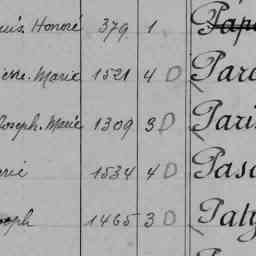 uis Honoré 379 1 Pap
erre-Marie 1521 4 D Par
Joseph-Marie 1309 3 D Pari
erie 1534 4 D Pasc
oseph 1465 3 D Paty